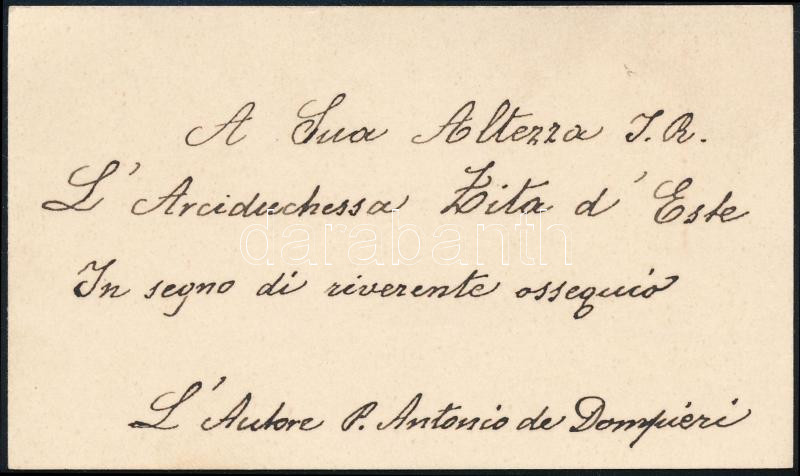 A Sua Altezza I. R.
L' Arciduchessa Zita d' Este
darabanth
In segno di riverente ossequio
L' Autore P. Antonio de Dompieri